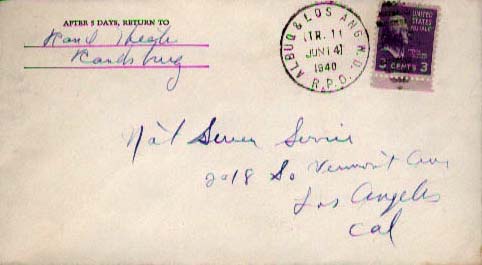 AFTER 5 DAYS, RETURN TO
Rand Theatr
Randsburg
ALBUQ & LOS ANG N.D.
TR. 11
JUN 14
1940
R.P.O.
UNITED
STATES
POSTAGE
3 CENTS 3
Nat Screen Service
2018 So Vermont Ave
Los Angeles
Cal